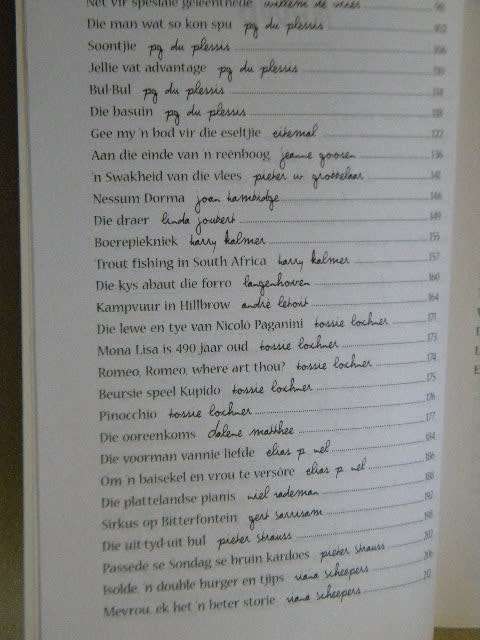 Net vir spesiale geleenthede willem de vries 98
Die man wat so kon spu pg du plessis 102
Soontjie pg du plessis 106
Jellie vat advantage pg du plessis 110
Bul-Bul pg du plessis 114
Die basuin pg du plessis 118
Gee my 'n bod vir die eseltjie eitemal 122
Aan die einde van 'n reënboog jeanne goosen 136
'n Swakheid van die vlees pieter w grobbelaar 141
Nessum Dorma joan hambidge 146
Die draer linda joubert 149
Boerepiekniek harry kalmer 155
Trout fishing in South Africa harry kalmer 157
Die kys abaut die forro langenhoven 160
Kampvuur in Hillbrow andré letoit 164
Die lewe en tye van Nicolò Paganini tossie lochner 171
Mona Lisa is 490 jaar oud tossie lochner 173
Romeo, Romeo, where art thou? tossie lochner 174
Beursie speel Kupido tossie lochner 175
Pinocchio tossie lochner 176
Die ooreenkoms dalene matthee 177
Die voorman vannie liefde elias p nel 184
Om 'n baisekel en vrou te versôre elias p nel 186
Die plattelandse pianis niel rademan 188
Sirkus op Bitterfontein gert sarrisam 192
Die uit-tyd-uit bul pieter strauss 198
Passede se Sondag se bruin kardoes pieter strauss 202
Isolde, 'n double burger en tjips riana scheepers 206
Mevrou, ek het 'n beter storie riana scheepers 212